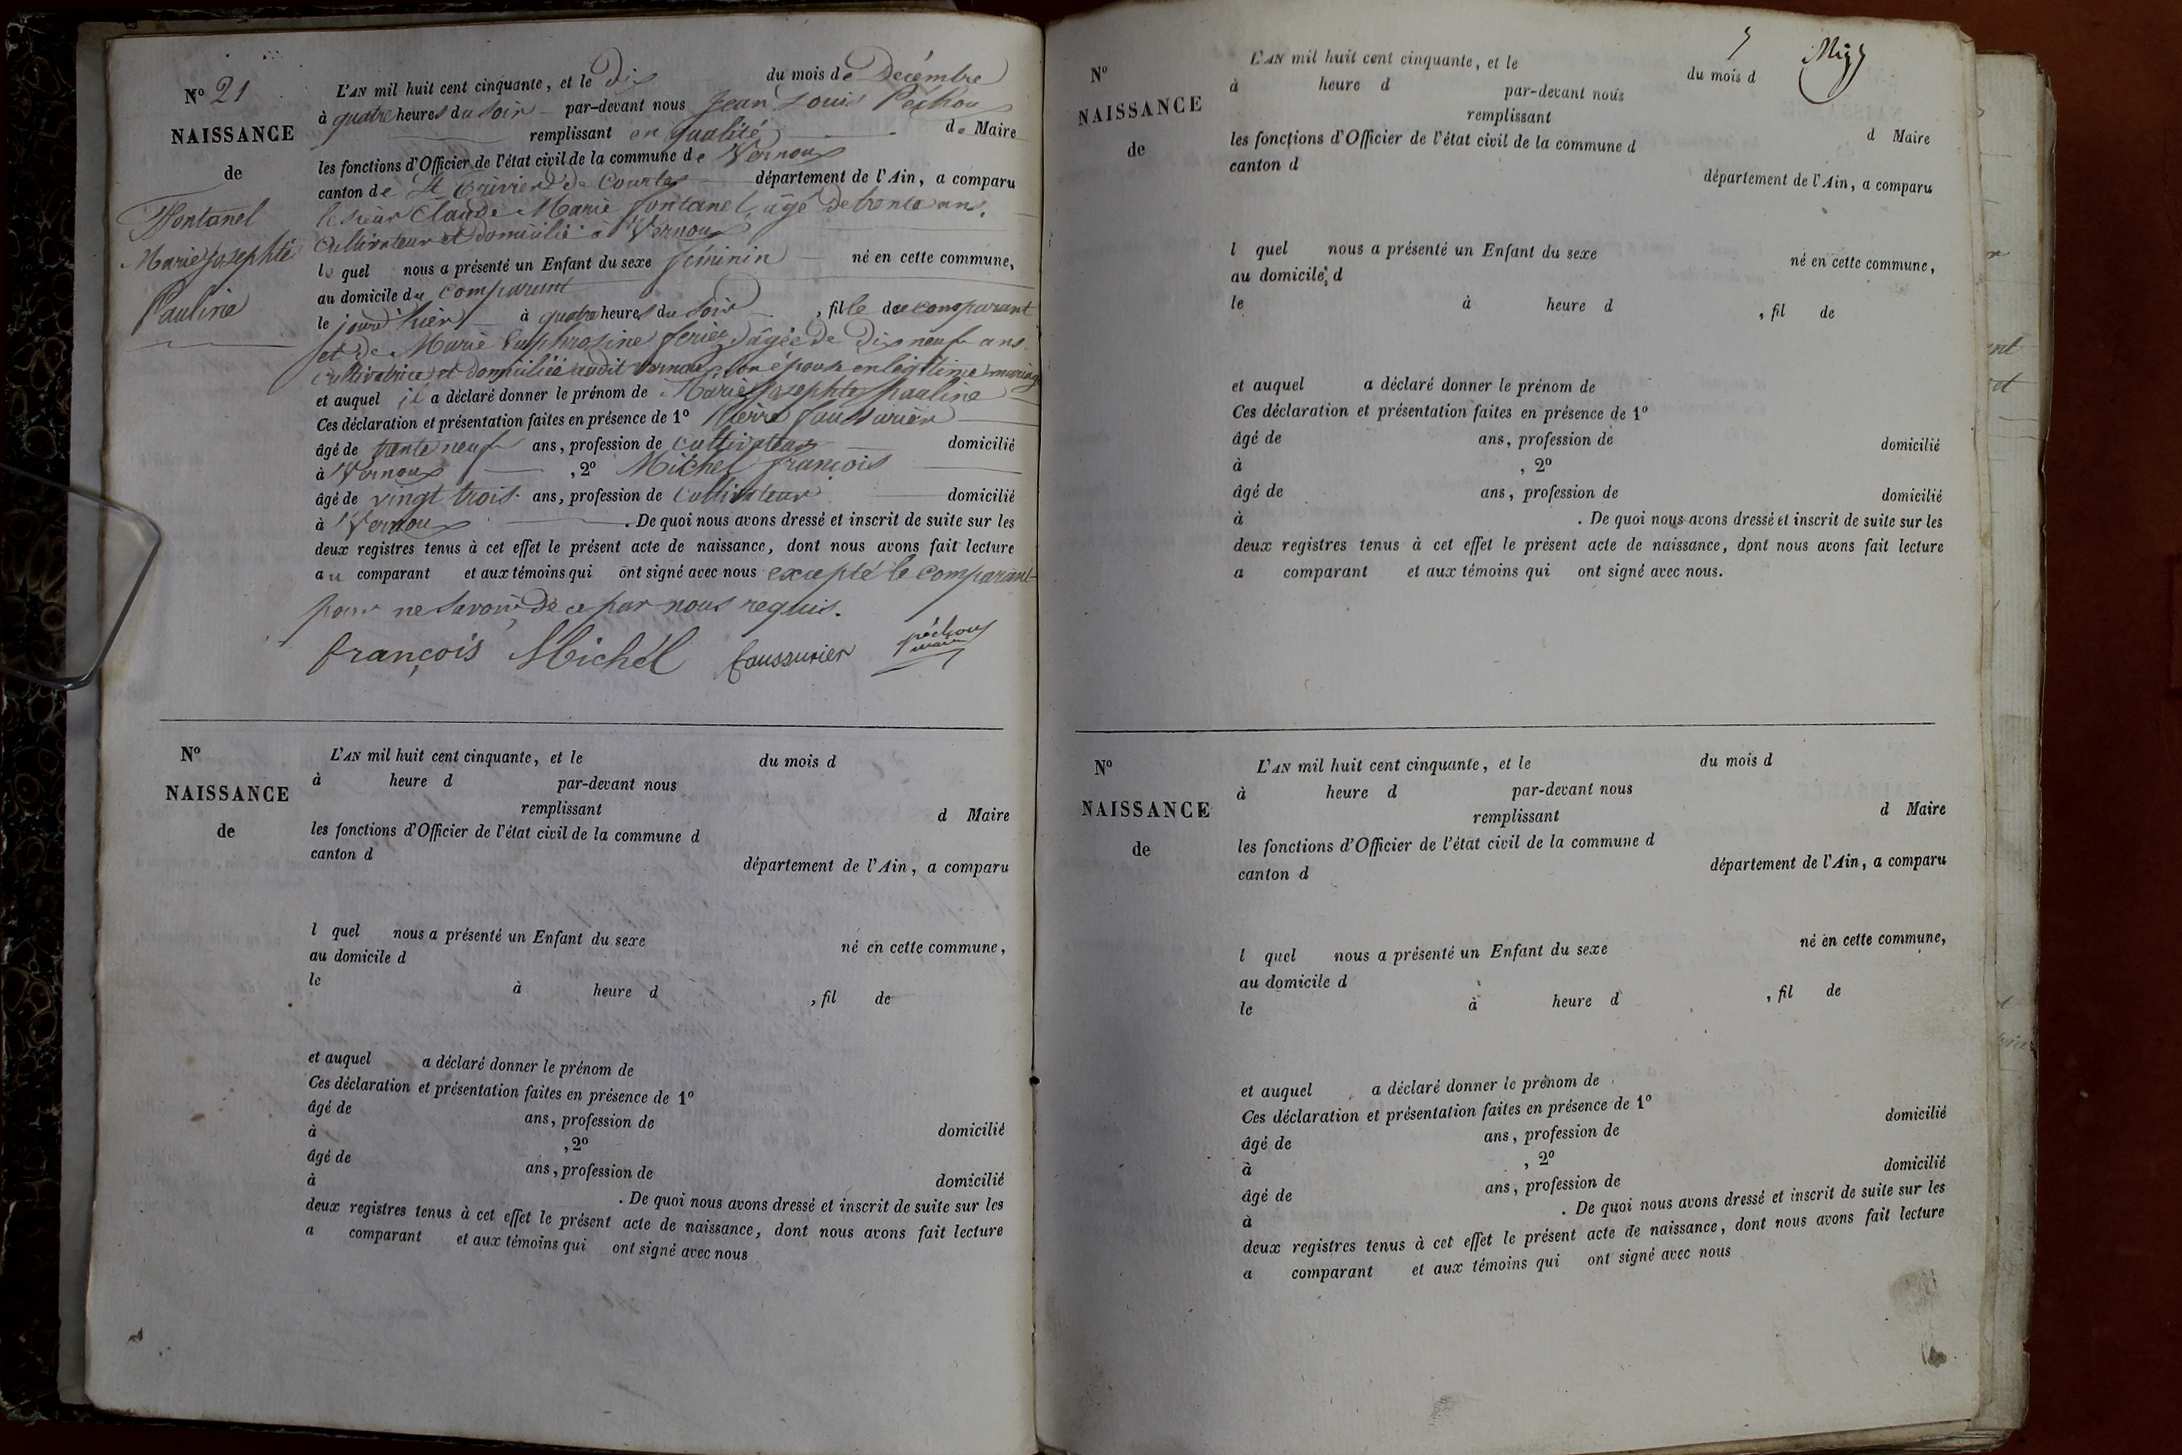 N° 21
NAISSANCE
de
Fontanel
Marie Josephte
Pauline
L'AN mil huit cent cinquante, et le Dix du mois de Décembre
à quatre heures du soir par-devant nous Jean Louis Péchoux
remplissant en qualité de Maire
les fonctions d'Officier de l'état civil de la commune de Vernoux
canton de St Trivier de Courtes département de l'Ain, a comparu
le sieur Claude Marie fontanel, âgé de trente ans,
Cultivateur et domicilié à Vernoux
le quel nous a présenté un Enfant du sexe féminin né en cette commune,
au domicile du comparant
le jour d'hier à quatre heures du soir, fille du comparant
et de Marie Euphrosine feriez, âgée de Dix neuf ans
cultivatrice et domiciliée audit Vernoux, son épouse en légitime mariage
et auquel il a déclaré donner le prénom de Marie Josephte Pauline
Ces déclaration et présentation faites en présence de 1° Pierre faussurier
âgé de trente neuf ans, profession de cultivateur domicilié
à Vernoux, 2° Michel françois
âgé de vingt trois ans, profession de Cultivateur domicilié
à Vernoux. De quoi nous avons dressé et inscrit de suite sur les
deux registres tenus à cet effet le présent acte de naissance, dont nous avons fait lecture
au comparant et aux témoins qui ont signé avec nous excepté le comparant
pour ne savoir de ce par nous requis.
françois Michel faussurier péchoux
maire
N°
NAISSANCE
de
L'AN mil huit cent cinquante, et le du mois d
à heure d par-devant nous
remplissant d Maire
les fonctions d'Officier de l'état civil de la commune d
canton d département de l'Ain, a comparu
l quel nous a présenté un Enfant du sexe né en cette commune,
au domicile d
le à heure d , fil de
et auquel a déclaré donner le prénom de
Ces déclaration et présentation faites en présence de 1°
âgé de ans, profession de domicilié
à , 2°
âgé de ans, profession de domicilié
à . De quoi nous avons dressé et inscrit de suite sur les
deux registres tenus à cet effet le présent acte de naissance, dont nous avons fait lecture
a comparant et aux témoins qui ont signé avec nous
N°
NAISSANCE
de
L'AN mil huit cent cinquante, et le du mois d
à heure d par-devant nous
remplissant d Maire
les fonctions d'Officier de l'état civil de la commune d
canton d département de l'Ain, a comparu
l quel nous a présenté un Enfant du sexe né en cette commune,
au domicile d
le à heure d , fil de
et auquel a déclaré donner le prénom de
Ces déclaration et présentation faites en présence de 1°
âgé de ans, profession de domicilié
à , 2°
âgé de ans, profession de domicilié
à . De quoi nous avons dressé et inscrit de suite sur les
deux registres tenus à cet effet le présent acte de naissance, dont nous avons fait lecture
a comparant et aux témoins qui ont signé avec nous.
N°
NAISSANCE
de
L'AN mil huit cent cinquante, et le du mois d
à heure d par-devant nous
remplissant d Maire
les fonctions d'Officier de l'état civil de la commune d
canton d département de l'Ain, a comparu
l quel nous a présenté un Enfant du sexe né en cette commune,
au domicile d
le à heure d , fil de
et auquel a déclaré donner le prénom de
Ces déclaration et présentation faites en présence de 1°
âgé de ans, profession de domicilié
à , 2°
âgé de ans, profession de domicilié
à . De quoi nous avons dressé et inscrit de suite sur les
deux registres tenus à cet effet le présent acte de naissance, dont nous avons fait lecture
a comparant et aux témoins qui ont signé avec nous